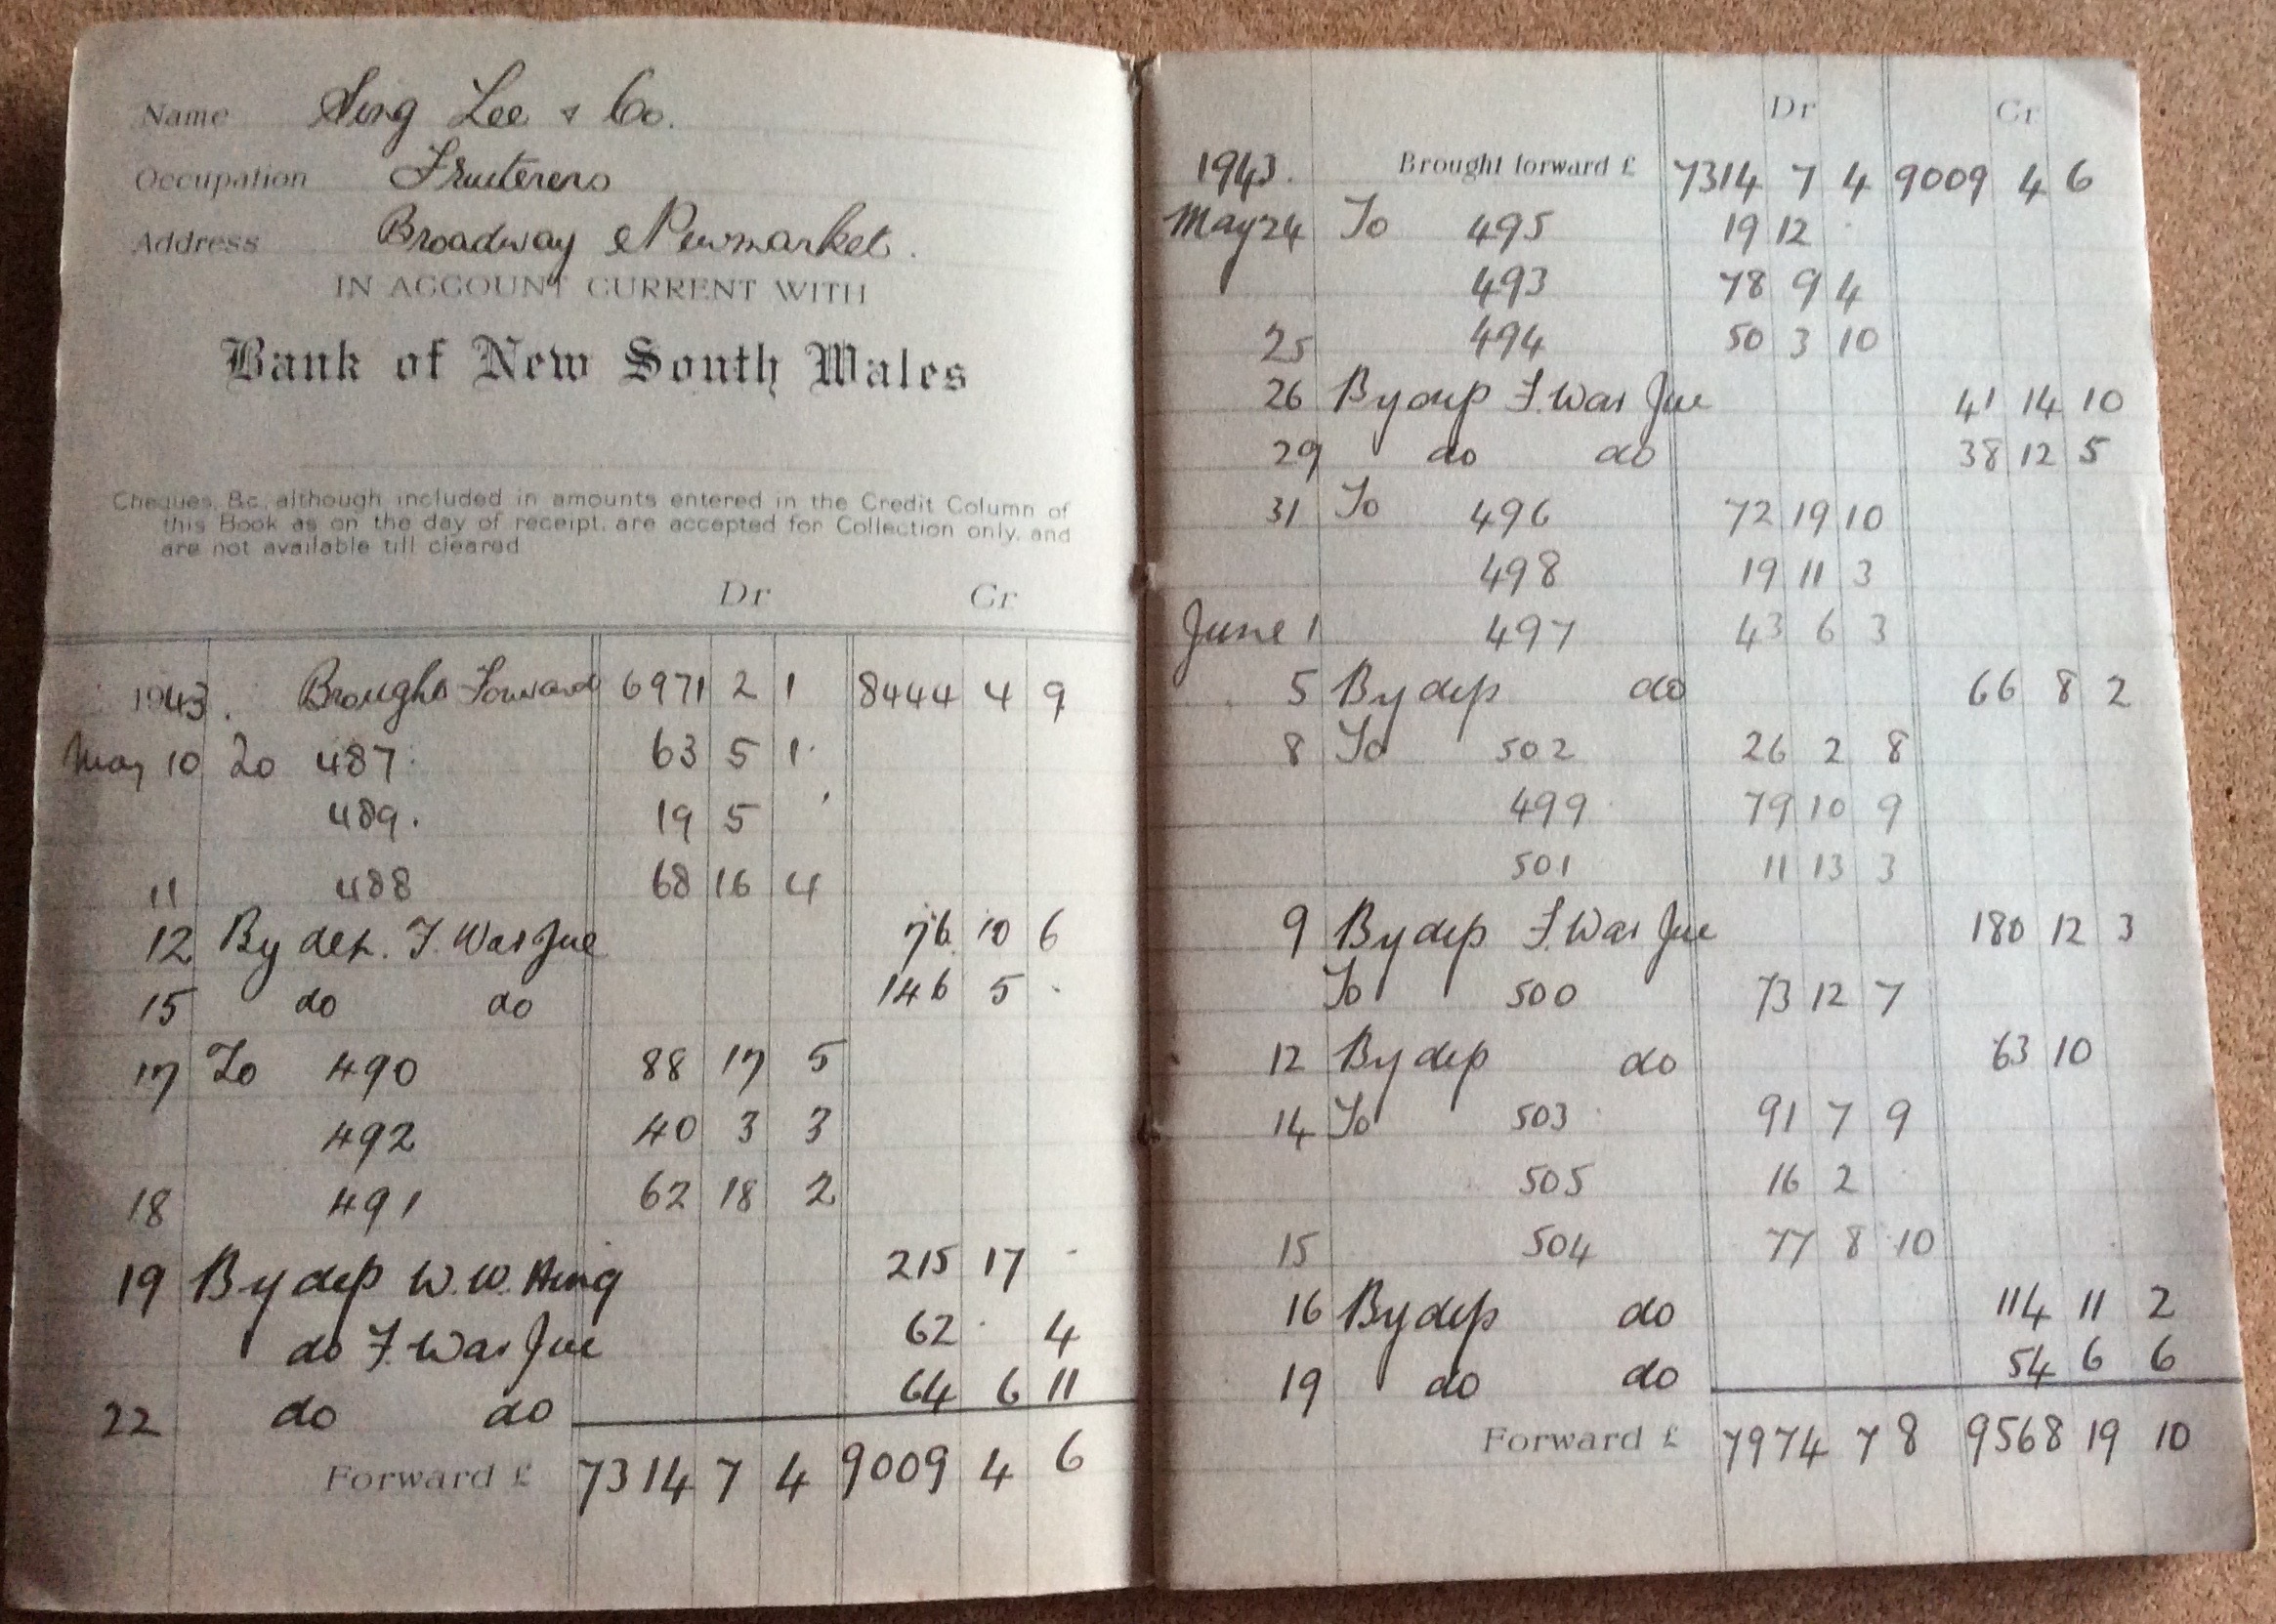 Name Sing Lee & Co.
Occupation Fruiterers
Address Broadway Newmarket.
IN ACCOUNT CURRENT WITH
Bank of New South Wales
Cheques, &c, although included in amounts entered in the Credit Column of
this Book as on the day of receipt, are accepted for Collection only, and
are not available till cleared
Dr Cr
1943. Brought Forward 6971 2 1 8444 4 9
May 10 To 487 63 5 1
489. 19 5
11 488 68 16 4
12 By dep. F. Was Jue 76 10 6
15 do do 146 5 -
17 To 490 88 17 5
492 40 3 3
18 491 62 18 2
19 By dep W. W. Hing 215 17 -
do F. Was Jue 62 - 4
22 do do 64 6 11
Forward £ 7314 7 4 9009 4 6
Dr Cr
1943. Brought forward £ 7314 7 4 9009 4 6
May 24 To 495 19 12
493 78 9 4
25 494 50 3 10
26 By dep F. Was Jue 41 14 10
29 do do 38 12 5
31 To 496 72 19 10
498 19 11 3
June 1 497 43 6 3
5 By dep do 66 8 2
8 To 502 26 2 8
499 79 10 9
501 11 13 3
9 By dep F. Was Jue 180 12 3
To 500 73 12 7
12 By dep do 63 10
14 To 503 91 7 9
505 16 2
15 504 77 8 10
16 By dep do 114 11 2
19 do do 54 6 6
Forward £ 7974 7 8 9568 19 10